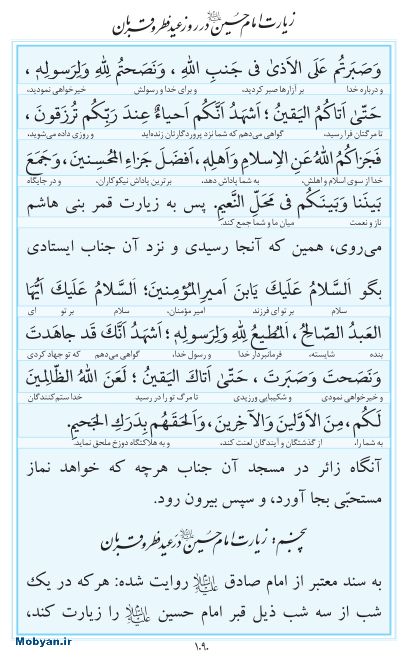 زیارت امام حسین علیه السلام در روز عید فطر و قربان
وَصَبَرتُم عَلَی الاَذیٰ فی جَنبِ اللهِ ، وَنَصَحتُم لِلّهِ وَلِرَسولِهِ ،
و درباره خدا بر آزارها صبر کردید، و برای خدا و رسولش خیرخواهی نمودید،
حَتّیٰ اَتاکُمُ الیَقینُ ؛ اَشهَدُ اَنَّکُم اَحیاءٌ عِندَ رَبِّکُم تُرزَقونَ ،
تا مرگتان فرا رسید، گواهی می‌دهم که شما نزد پروردگارتان زنده‌اید و روزی داده می‌شوید،
فَجَزاکُمُ اللهُ عَنِ الاِسلامِ وَاَهلِهِ، اَفضَلَ جَزاءِ المُحسِنینَ ، وَجَمَعَ
خدا از سوی اسلام و اهلش، به شما پاداش دهد، برترین پاداش نیکوکاران، و در جایگاه
بَینَنا وَبَینَکُم فی مَحَلِّ النَّعیمِ. پس به زیارت قمر بنی هاشم
ناز و نعمت میان ما و شما جمع کند.
می‌روی، همین که آنجا رسیدی و نزد آن جناب ایستادی
بگو اَلسَّلامُ عَلَیکَ یَابنَ اَمیرِالمُؤمِنینَ؛ اَلسَّلامُ عَلَیکَ اَیُّهَا
سلام بر تو ای فرزند امیر مؤمنان، سلام بر تو ای
العَبدُ الصّالِحُ ، اَلمُطیعُ لِلّهِ وَلِرَسولِهِ ؛ اَشهَدُ اَنَّکَ قَد جاهَدتَ
بنده شایسته، فرمانبردار خدا و رسول خدا، گواهی می‌دهم که تو جهاد کردی
وَنَصَحتَ وَصَبَرتَ ، حَتّیٰ اَتاکَ الیَقینُ ؛ لَعَنَ اللهُ الظّالِمینَ
و خیرخواهی نمودی و شکیبایی ورزیدی تا مرگ تو را در رسید خدا ستم‌کنندگان
لَکُم ،مِنَ الاَوَّلینَ وَالآخِرینَ ، وَاَلحَقَهُم بِدَرَکِ الجَحیمِ.
به شما را، از گذشتگان و آیندگان لعنت کند، و به هلاکتگاه دوزخ ملحق نماید.
آنگاه زائر در مسجد آن جناب هرچه که خواهد نماز
مستحبّی بجا آورد، و سپس بیرون رود.
پنجم: زیارت امام حسین علیه السلام در عید فطر و قربان
به سند معتبر از امام صادق علیه السلام روایت شده: هرکه در یک
شب از سه شب ذیل قبر امام حسین علیه السلام را زیارت کند،
۱۰۹۰
Mobyan.ir